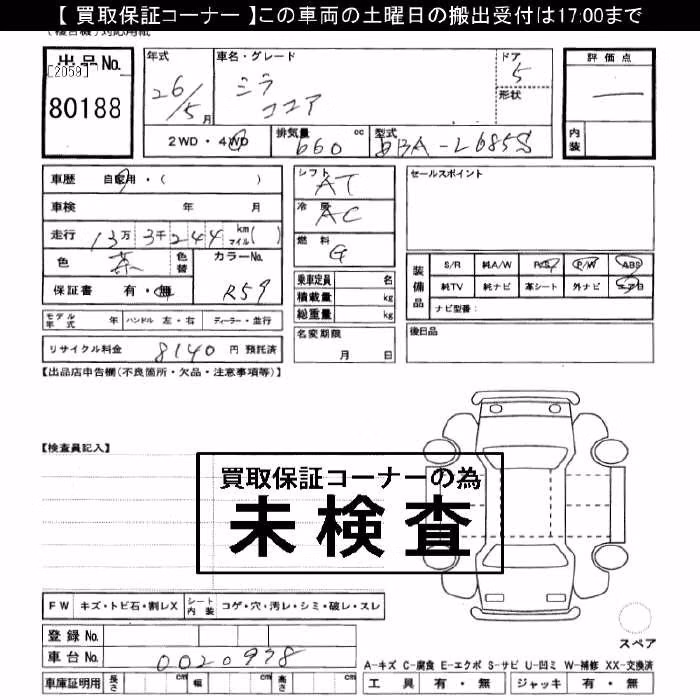 【 買取保証コーナー 】この車両の土曜日の搬出受付は17:00まで
出品No.
[2059]
80188
年式
26/5月
車名・グレード
ミラ
ココア
ドア
5
形状
評価点
—
内装
2WD・4WD
排気量 660 cc
型式 DBA-L685S
車歴 自家用・( )
車検 年 月
走行 13万3千244 km マイル( )
色 茶 色替
カラーNo.
R59
保証書 有・無
モデル年式 年 ハンドル 左・右 ディーラー・並行
リサイクル料金 8140 円 預託済
シフト AT
冷房 AC
燃料 G
乗車定員 名
積載量 kg
総重量 kg
名変期限
月 日
セールスポイント
装備品
S/R 純A/W P/S P/W ABS
純TV 純ナビ 革シート 外ナビ エアB
ナビ型番:
後日品
【出品店申告欄(不良箇所・欠品・注意事項等)】
【検査員記入】
買取保証コーナーの為
未検査
FW キズ・トビ石・割レX シート内装 コゲ・穴・汚レ・シミ・破レ・スレ
登録No.
車台No. 0020978
車庫証明用 長さ cm 幅 cm 高さ cm
スペア
A-キズ C-腐食 E-エクボ S-サビ U-凹ミ W-補修 XX-交換済
工具 有・無 ジャッキ 有・無